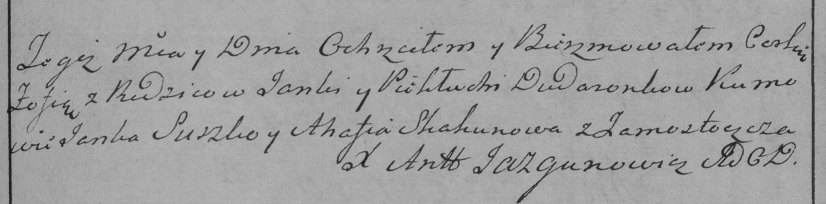 Tegoż Mca y Dnia Ochrzciłem y Bierzmowałem Corkę
Zofiią z Rodzicow Janki y Piekłuchi Dudaronkow Kumo
wie Janka Suszko y Ahafia Skakunowa z Zamostocza
X Antt Jazgunowicz